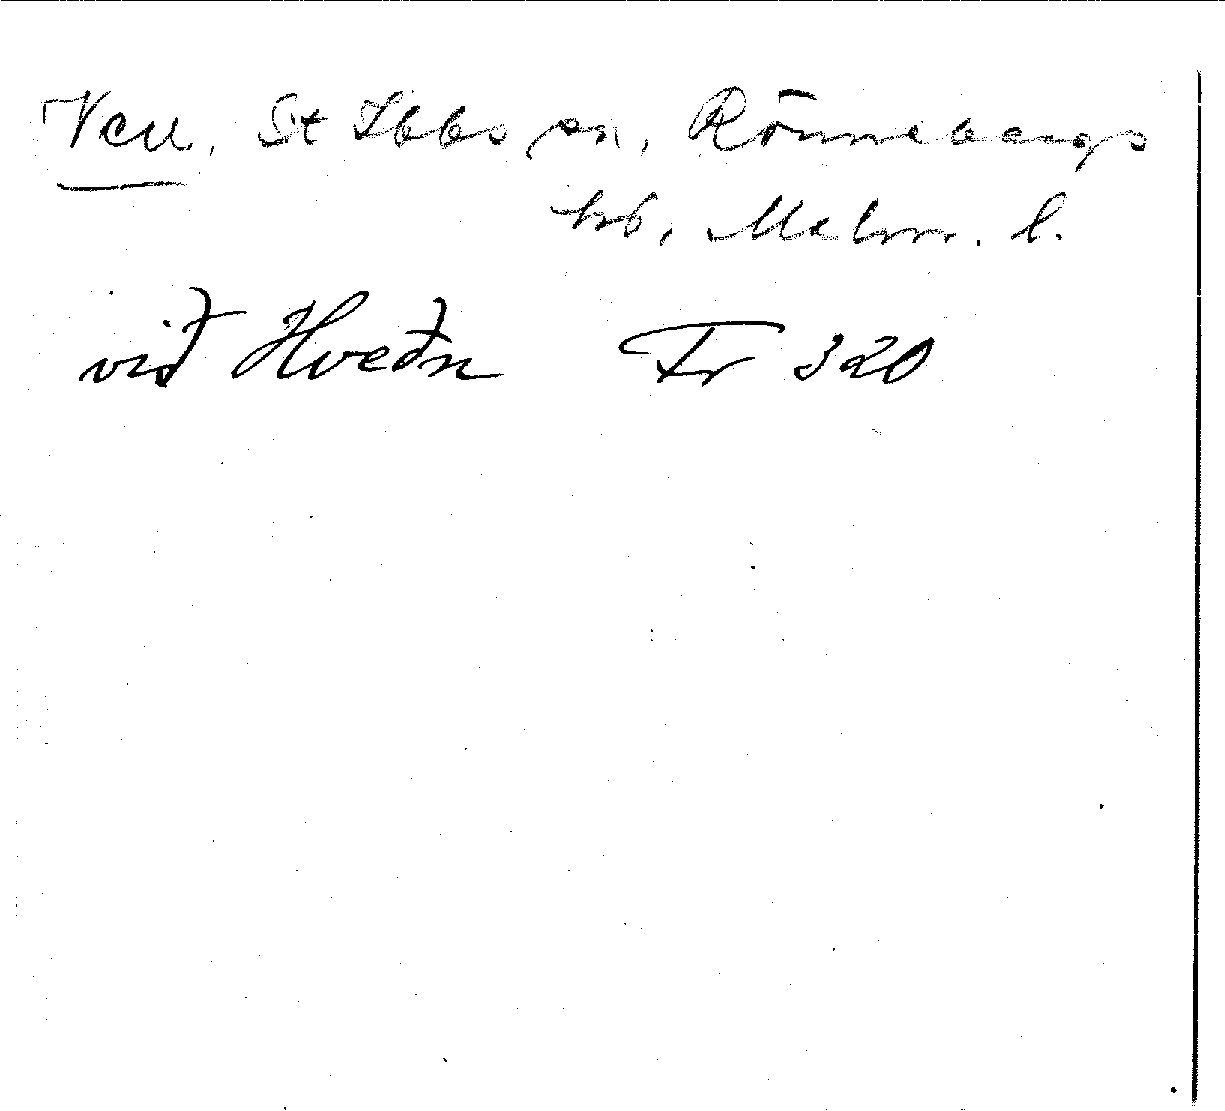 Ven, St Ibbs sn, Rönnebergs
hd, Malm. l.
við Hveðn Fr 320